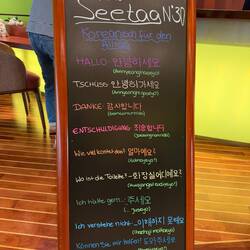 Seetag N°30
Koreanisch für den
Alltag
HALLO 안녕하세요
(Annyeonghaseyo)
TSCHÜSS 안녕히가세요
DANKE 감사합니다
(gamsahamnida)
ENTSCHULDIGUNG 죄송합니다
Wie viel kostet das? 얼마예요?
Wo ist die Toilette? -화장실어디에요?
Ich hätte gern... ...주세요
(...juseyo)
Ich verstehe nicht -이해하지 못해요
(ihaehaji mothaeyo)
Können Sie mir helfen? 도와주세요